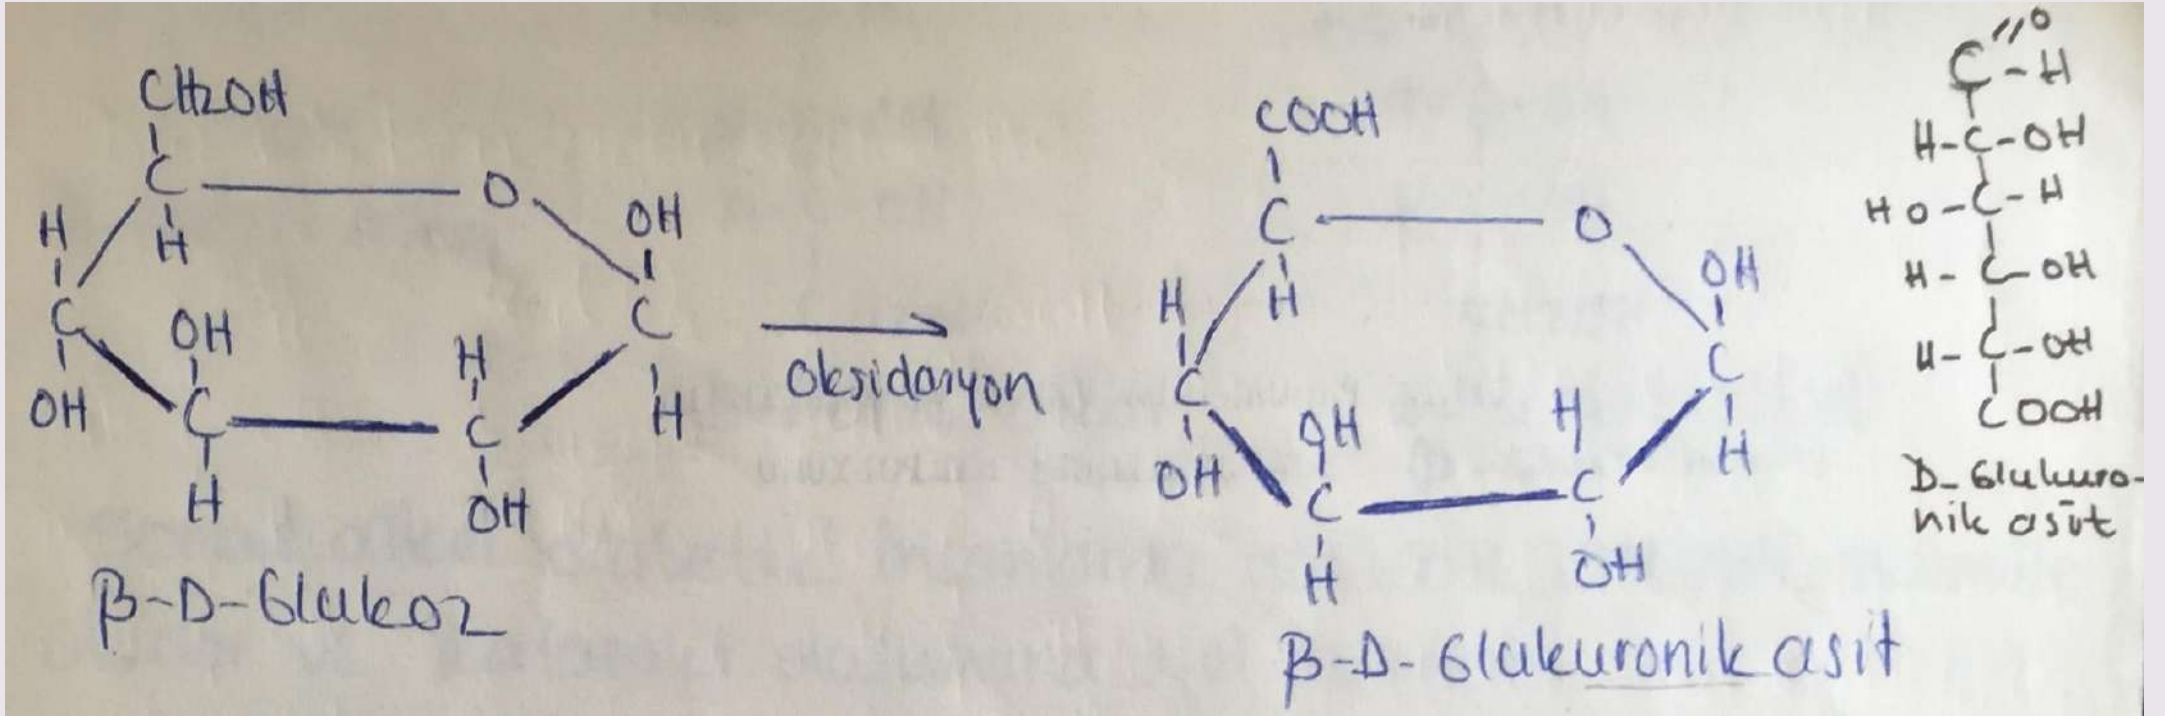 CH2OH
C
O
H
H
OH
C
OH
C
H
OH
C
C
H
H
OH
β-D-Glukoz
Oksidasyon
COOH
C
O
H
H
OH
C
OH
C
H
OH
C
C
H
H
OH
β-D-Glukuronik asit
C=O
-H
H-C-OH
HO-C-H
H-C-OH
H-C-OH
COOH
D-Glukuro-
nik asit